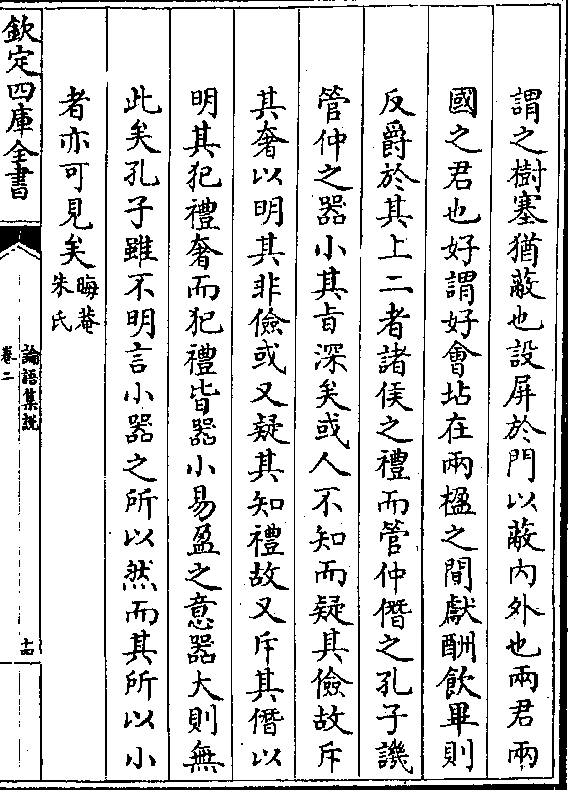 謂之樹塞猶蔽也設屏於門以蔽内外也兩君兩
國之君也好謂好會坫在兩楹之間獻酬飲畢則
反爵於其上二者諸侯之禮而管仲僭之孔子譏
管仲之器小其旨深矣或人不知而疑其儉故斥
其奢以明其非儉或又疑其知禮故又斥其僭以
明其犯禮奢而犯禮皆器小易盈之意器大則無
此矣孔子雖不明言小器之所以然而其所以小
者亦可見矣晦菴
朱氏
欽定四庫全書
論語集説
卷二
十四